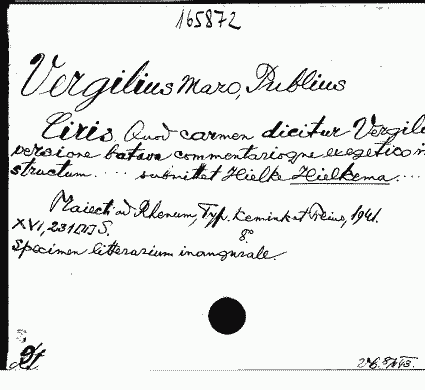 165872
Vergilius Maro, Publius
Ciris. Quod carmen dicitur Vergili
versione batava commentarioque exegetico in
structum.... submittet Hielke Hielkema....
Traiecti ad Rhenum, Typ. Kemink et , 1941.
XVI, 231 S. 8°
Specimen litterarium inaugurale.